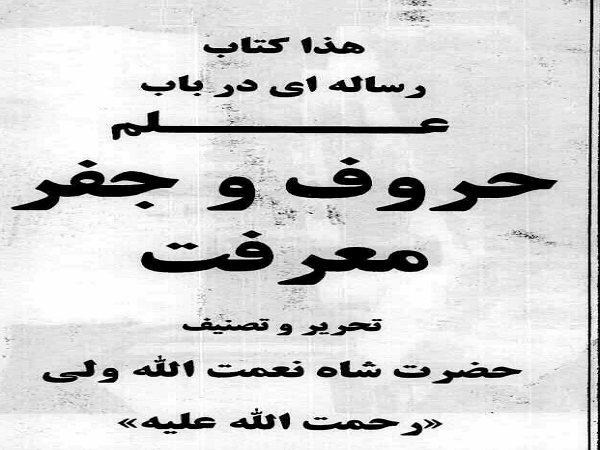 هذا کتاب
رساله ای در باب
علم
حروف و جفر
معرفت
تحریر و تصنیف
حضرت شاه نعمت الله ولی
«رحمت الله علیه»